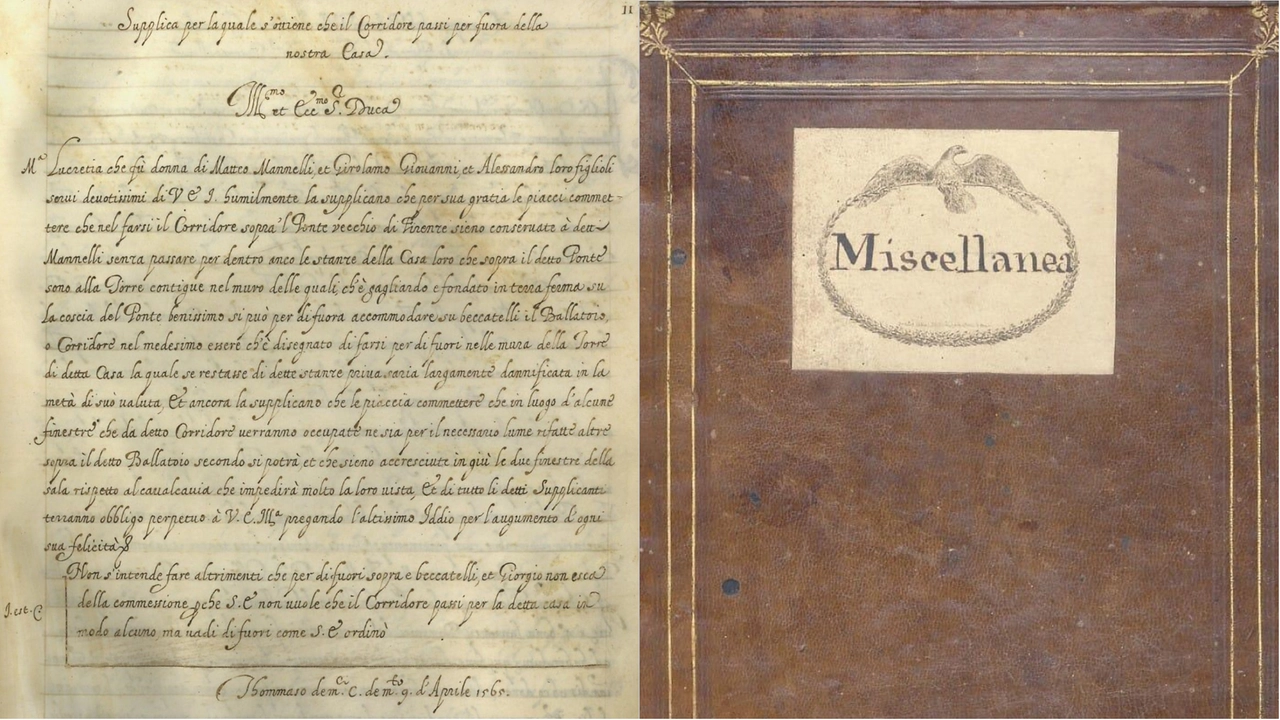 11
Supplica per la quale s'ottiene che il Corridore passi per fuora della
nostra Casa.
Ill.mo et Ecc.mo S. Duca
M.a Lucretia che fù donna di Matteo Mannelli, et Girolamo Giovanni, et Alessandro loro figlioli
servi devotissimi di V E I. humilmente la supplicano che per sua gratia le piacci commet-
tere che nel farsi il Corridore sopra'l Ponte vecchio di Firenze sieno conservate à detti
Mannelli senza passare per dentro anco le stanze della Casa loro che sopra il detto Ponte
sono alla Torre contigue nel muro delle quali, ch'è gagliardo e fondato in terra ferma su
la coscia del Ponte benissimo si può per di fuora accommodare su beccatelli il Ballatoio,
o Corridore nel medesimo essere ch'è disegnato di farsi per di fuori nelle mura della Torre
di detta Casa la quale se restasse di dette stanze priva saria largamente dannificata in la
metà di suo valuta, Et ancora la supplicano che le piaccia commettere che in luogo d'alcune
finestre che da detto Corridore verranno occupate ne sia per il necessario lume rifatte altre
sopra il detto Ballatoio secondo si potrà et che sieno accresciute in giù le due finestre della
sala rispetto al cavalcavia che impedirà molto la loro vista, Et di tutto li detti Supplicanti
terranno obbligo perpetuo à V. E. Ill.a pregando l'altissimo Iddio per l'augumento d'ogni
sua felicità
Non s'intende fare altrimenti che per di fuori sopra e beccatelli, et Giorgio non esca
J. est. C. della commessione pche S. E non vuole che il Corridore passi per la detta casa in
modo alcuno, ma vadi di fuori come S. E ordinò
Thommaso de m.ci C. de m.to 9. d'Aprile 1565.
Miscellanea